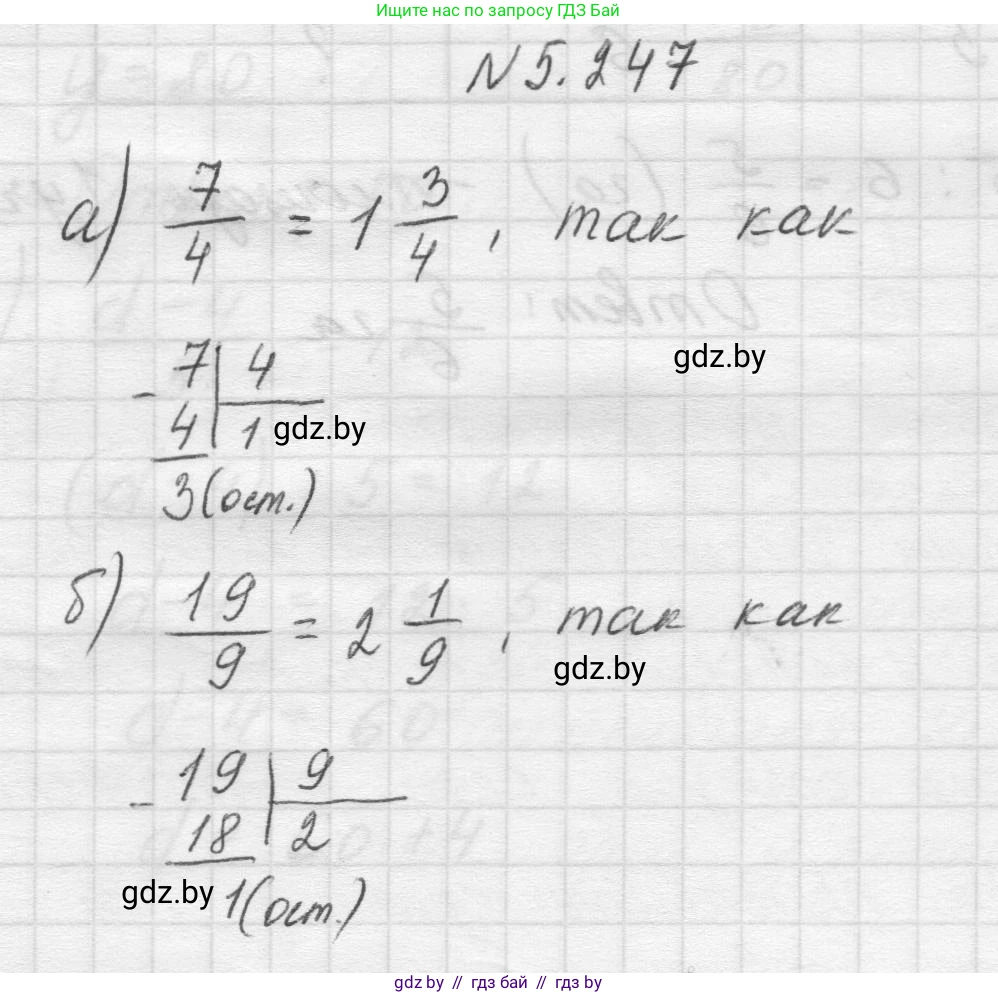 Ищите нас по запросу ГДЗ Бай
N 5.247
а) 7/4 = 1 3/4, так как
- 7 | 4
4 | 1
3 (ост.)
gdz.by
gdz.by
б) 19/9 = 2 1/9, так как
gdz.by
- 19 | 9
18 | 2
1 (ост.)
gdz.by
gdz.by // гдз бай // гдз by